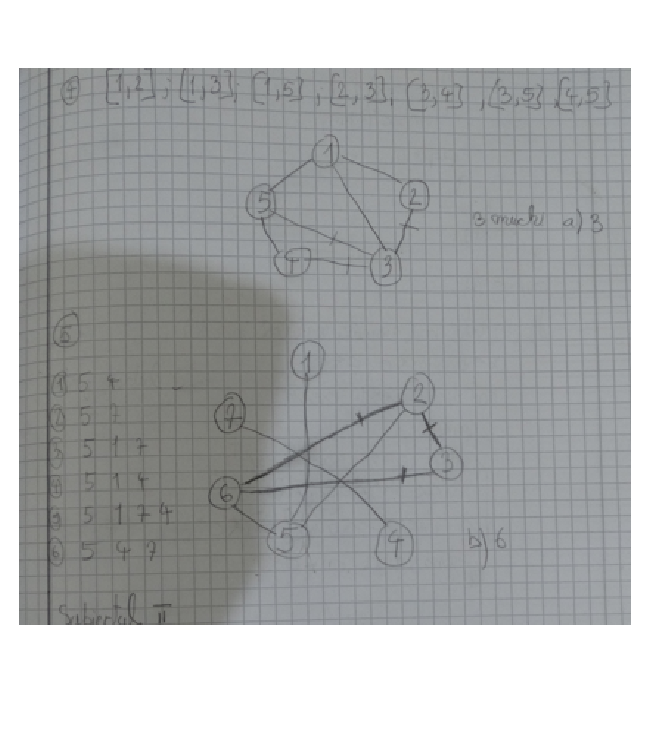 ④ [1,2]; [1,3]; [1,5]; [2,3], [3,4], [3,5] [4,5]
1
5
2
4
3
3 muchi a) 3
⑤
① 5 4
② 5 7
③ 5 1 7
④ 5 1 4
⑤ 5 1 7 4
⑥ 5 4 7
1
2
7
3
6
5
4
b) 6
Subiectul II